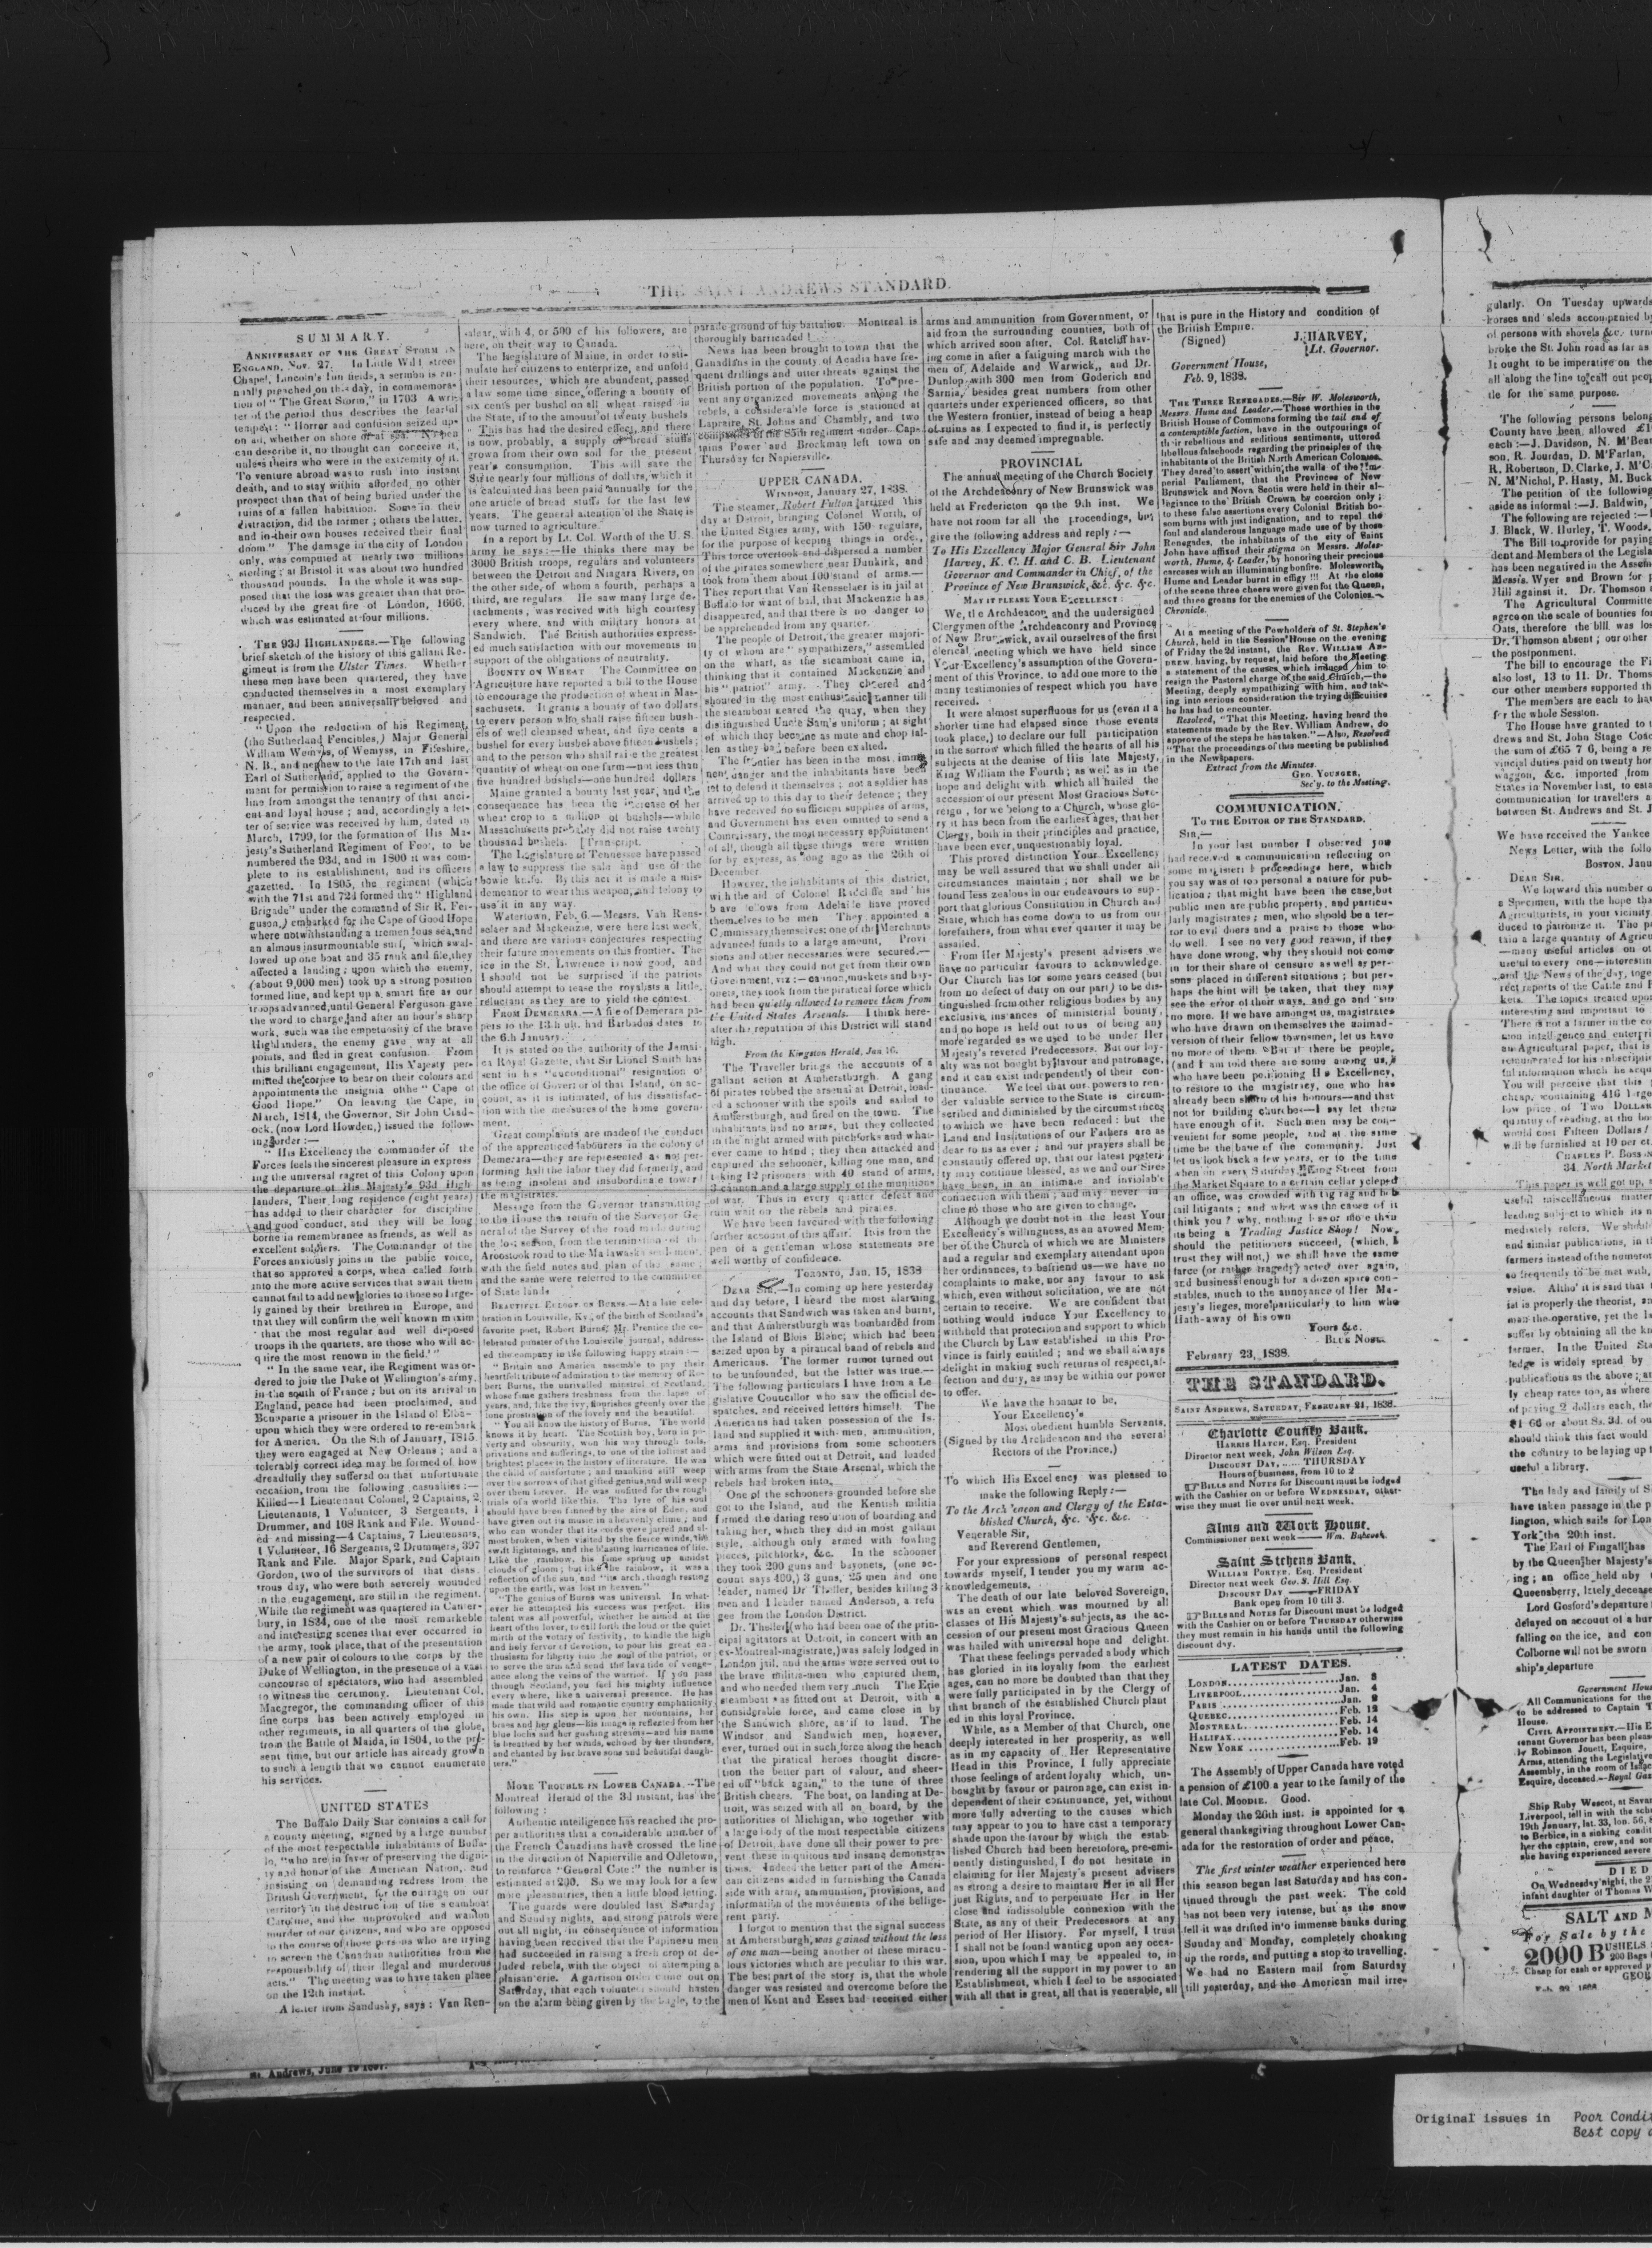 THE SAINT ANDREWS STANDARD.
SUMMARY.
ANNIVERSARY OF THE GREAT STORM IN
ENGLAND, Nov. 27. In Little Wild street
Chapel, Lincoln's Inn fields, a sermon is an-
nually preached on this day, in commemora-
tion of "The Great Storm," in 1703 A wri-
ter of the period thus describes the fearful
tempest: "Horror and confusion seized up-
on all, whether on shore or at sea: No pen
can describe it, no thought can conceive it,
unless theirs who were in the extremity of it.
To venture abroad was to rush into instant
death, and to stay within afforded no other
prospect than that of being buried under the
ruins of a fallen habitation. Some in their
distraction, did the former; others the latter,
and in their own houses received their final
doom" The damage in the city of London
only, was computed at nearly two millions
sterling; at Bristol it was about two hundred
thousand pounds. In the whole it was sup-
posed that the loss was greater than that pro-
duced by the great fire of London, 1666,
which was estimated at four millions.
THE 93d HIGHLANDERS.—The following
brief sketch of the history of this gallant Re-
giment is from the Ulster Times. Whether
these men have been quartered, they have
conducted themselves in a most exemplary
manner, and been universally beloved and
respected.
"Upon the reduction of his Regiment
(the Sutherland Fencibles,) Major General
William Wemyss, of Wemyss, in Fifeshire,
N. B., and nephew to the late 17th and last
Earl of Sutherland, applied to the Govern-
ment for permission to raise a regiment of the
line from amongst the tenantry of that anci-
ent and loyal house; and, accordingly a let-
ter of service was received by him, dated in
March, 1799, for the formation of His Ma-
jesty's Sutherland Regiment of Foot, to be
numbered the 93d, and in 1800 it was com-
plete to its establishment, and its officers
gazetted. In 1805, the regiment (which
with the 71st and 72d formed the "Highland
Brigade" under the command of Sir R. Fer-
guson,) embarked for the Cape of Good Hope
where notwithstanding a tremendous sea, and
an almous insurmountable surf, which swal-
lowed up one boat and 35 rank and file, they
affected a landing; upon which the enemy,
(about 9,000 men) took up a strong position
formed line, and kept up a smart fire as our
troops advanced, until General Ferguson gave
the word to charge, and after an hour's sharp
work, such was the empetuosity of the brave
Highlanders, the enemy gave way at all
points, and fled in great confusion. From
this brilliant engagement, His Majesty per-
mitted the corps to bear on their colours and
appointments the insignia of the "Cape of
Good Hope." On leaving the Cape, in
March, 1814, the Governor, Sir John Crad-
ock, (now Lord Howden,) issued the follow-
ing order:—
"His Excellency the commander of the
Forces feels the sincerest pleasure in express
ing the universal ragret of this Colony upon
the departure of His Majesty's 93d High-
landers, Their long residence (eight years)
has added to their character for discipline
and good conduct, and they will be long
borne in remembrance as friends, as well as
excellent soldiers. The Commander of the
Forces anxiously joins in the public voice,
that so approved a corps, when called forth
into the more active services that await them
cannot fail to add new glories to those so large-
ly gained by their brethren in Europe, and
that they will confirm the well known maxim
'that the most regular and well disposed
troops in the quarters, are those who will ac-
quire the most renown in the field.'"
"In the same year, the Regiment was or-
dered to join the Duke of Wellington's army,
in the south of France; but on its arrival in
England, peace had been proclaimed, and
Bonaparte a prisoner in the Island of Elba—
upon which they were ordered to re-embark
for America. On the 8th of January, 1815.
they were engaged at New Orleans; and a
tolerably correct idea may be formed of how
dreadfully they suffered on that unfortunate
occasion, from the following casualties:—
Killed—1 Lieutenant Colonel, 2 Captains, 2
Lieutenants, 1 Volunteer, 3 Sergeants, 1
Drummer, and 108 Rank and File. Wound-
ed and missing—4 Captains, 7 Lieutenants,
1 Volunteer, 16 Sergeants, 2 Drummers, 397
Rank and File. Major Spark, and Captain
Gordon, two of the survivors of that disas-
trous day, who were both severely wounded
in the engagement, are still in the regiment.
While the regiment was quartered in Canter-
bury, in 1834, one of the most remarkeble
and interesting scenes that ever occurred in
the army, took place, that of the presentation
of a new pair of colours to the corps by the
Duke of Wellington, in the presence of a vast
concourse of spectators, who had assembled
to witness the cermony. Lieutenant Col.
Macgregor, the commanding officer of this
fine corps has been actively employed in
other regiments, in all quarters of the globe,
from the Battle of Maida, in 1804, to the pre-
sent time, but our article has already grown
to such a length that we cannot enumerate
his services.
UNITED STATES
The Buffalo Daily Star contains a call for
a county meeting, signed by a large number
of the most respectable inhabitants of Buffa-
lo, "who are in favor of preserving the digni-
ty and honor of the American Nation, and
insisting on demanding redress from the
British Government, for the outrage on our
territory in the destruction of the steamboat
Caroline, and the unprovoked and wanton
murder of our citizens, and who are opposed
to the course of those persons who are trying
to screen the Canadian authorities from the
responsibility of their illegal and murderous
acts." The meeting was to have taken place
on the 12th instant.
A letter from Sandusky, says: Van Ren-
salear, with 4, or 500 of his followers, are
here, on their way to Canada.
The Legislature of Maine, in order to sti-
mulate her citizens to enterprize, and unfold
their resources, which are abundent, passed
a law some time since, offering a bounty of
six cents per bushel on all wheat raised in
the State, if to the amount of twenty bushels
This has had the desired effect, and there
is now, probably, a supply of bread stuffs
grown from their own soil for the present
year's consumption. This will save the
State nearly four millions of dollars, which it
is calculated has been paid annually for the
one article of bread stuffs for the last few
years. The general attention of the State is
now turned to agriculture.
In a report by Lt. Col. Worth of the U. S.
army he says:—He thinks there may be
3000 British troops, regulars and volunteers
between the Detroit and Niagara Rivers, on
the other side, of whom a fourth, perhaps a
third, are regulars. He saw many large de-
tachments, was recived with high courtesy
every where, and with military honors at
Sandwich. The British authorities express-
ed much satisfaction with our movements in
support of the obligations of neutrality.
BOUNTY ON WHEAT The Committee on
Agriculture have reported a bill to the House
to encourage the production of wheat in Mas-
sachusets. It grants a bounty of two dollars
to every person who shall raise fifteen bush-
els of well cleansed wheat, and five cents a
bushel for every bushel above fifteen bushels;
and to the person who shall raise the greatest
quantity of wheat on one farm—not less than
five hundred bushels—one hundred dollars
Maine granted a bounty last year, and the
consequence has been the increase of her
wheat crop to a million of bushels—while
Massachusetts probably did not raise twenty
thousand bushels. [Transcript.
The Legislature of Tennessee have passed
a law to suppress the sale and use of the
bowie knife. By this act it is made a mis-
demeanor to wear this weapon, and felony to
use it in any way.
Watertown, Feb. 6.—Messrs. Van Rens-
selaer and Mackenzie, were here last week,
and there are various conjectures respecting
their future movements on this frontier. The
ice in the St. Lawrence is now good, and
I should not be surprised if the patriots
should attempt to tease the royalists a little,
reluctant as they are to yield the contest.
FROM DEMERARA.—A file of Demerara pa-
pers to the 13th ult. had Barbados dates to
the 6th January.
It is stated on the authority of the Jamai-
ca Royal Gazette, that Sir Lionel Smith has
sent in his "unconditional" resignation of
the office of Governor of that Island, on ac-
count, as it is intimated, of his dissatisfac-
tion with the measures of the home govern-
ment.
Great complaints are made of the conduct
of the apprenticed labourers in the colony of
Demerara—they are represented as not per-
forming half the labor they did formerly, and
as being insolent and insubordinate toward
the magistrates.
Message from the Governor transmitting
to the House the return of the Surveyor Ge-
neral of the Survey of the road made during
the last season, from the termination of the
Aroostook road to the Malawaska settlement
with the field notes and plan of the same;
and the same were referred to the committee
of State lands
BEAUTIFUL EULOGY ON BURNS.—At a late cele-
bration in Louisville, Ky., of the birth of Scotland's
favorite poet, Robert Burns, Mr. Prentice the ce-
lebrated punster of the Louisville journal, address-
ed the company in the following happy strain:—
"Britain and America assemble to pay their
heartfelt tribute of admiration to the memory of Ro-
bert Burns, the unrivalled minstrel of Scotland,
whose fame gathers freshness from the lapse of
years, and, like the ivy, flourishes greenly over the
lone prostration of the lovely and the beautiful.
"You all know the history of Burns. The world
knows it by heart. The Scottish boy, born in po-
verty and obscurity, won his way through toils,
privations and sufferings, to one of the loftiest and
brightest places in the history of literature. He was
the child of misfortune; and mankind still weep
over the sorrows of that gifted genius, and will weep
over them forever. He was unfitted for the rough
trials of a world like this. The lyre of his soul
should have been fanned by the airs of Eden, and
have given out its music in a heavenly clime; and
who can wonder that its cords were jarred and al-
most broken, when visited by the fierce winds, the
swift lightnings, and the blasting hurricanes of life.
Like the rainbow, his fame sprung up amidst
clouds of gloom; but like the rainbow, it was a
reflection of the sun, and "its arch, though resting
upon the earth, was lost in heaven."
"The genius of Burns was universal. In what-
ever he attempted his success was perfect. His
talent was all powerful, whether he aimed at the
heart of the lover, to call forth the loud or the quiet
mirth of the votary of festivity, to kindle the high
and holy fervor of devotion, to pour his great en-
thusiasm for liberty into the soul of the patriot, or
to serve the arm and send the lava tide of venge-
ance along the veins of the warrior. If you pass
through Scotland, you feel his mighty influence
every where, like a universal presence. He has
made that wild and romantic country emphatically
his own. His step is upon her mountains, her
braes and her glens—his image is reflected from her
blue lochs and her gushing streams—and his name
is breathed by her winds, echoed by her thunders,
and chanted by her brave sons and beautiful daugh-
ters."
MORE TROUBLE IN LOWER CANADA.—The
Montreal Herald of the 3d instant, has the
following:
Authentic intelligence has reached the pro-
per authorities that a considerable number of
the French Canadians have crossed the line
in the direction of Napierville and Odletown,
to reinforce "General Cote:" the number is
estimated at 200. So we may look for a few
more pleasantries, then a little blood letting.
The guards were doubled last Saturday
and Sunday nights, and strong patrols were
out all night, in consequence of information
having been received that the Papineau men
had succeeded in raising a fresh crop of de-
luded rebels, with the object of attemping a
plaisanterie. A garrison order came out on
Saturday, that each volunteer should hasten
on the alarm being given by the bugle, to the
parade ground of his battalion. Montreal is
thoroughly barricaded!
News has been brought to town that the
Canadians in the county of Acadia have fre-
quent drillings and utter threats against the
British portion of the population. To pre-
vent any organized movements among the
rebels, a considerable force is stationed at
Lapraire, St. Johns and Chambly, and two
companies of the 85th regiment under Cap-
tains Power and Brockman left town on
Thursday for Napiersville.
UPPER CANADA.
WINDSOR, January 27, 1838.
The steamer, Robert Fulton arrived this
day at Detroit, bringing Colonel Worth, of
the United States army, with 150 regulars,
for the purpose of keeping things in order.
This force overtook and dispersed a number
of the pirates somewhere near Dunkirk, and
took from them about 100 stand of arms.—
They report that Van Rensselaer is in jail at
Buffalo for want of bail, that Mackenzie has
disappeared, and that there is no danger to
be apprehended from any quarter.
The people of Detroit, the greater majori-
ty of whom are "sympathizers," assembled
on the wharf, as the steamboat came in,
thinking that it contained Mackenzie and
his "patriot" army. They cheered and
shouted in the most enthusiastic manner till
the steamboat neared the quay, when they
disinguished Uncle Sam's uniform; at sight
of which they became as mute and chop fal-
len as they had before been exalted.
The frontier has been in the most immi-
nent danger and the inhabitants have been
left to defend it themselves; not a soldier has
arrived up to this day to their defence; they
have received no sufficient supplies of arms,
and Government has even omitted to send a
Commissary, the most necessary appointment
of all, though all these things were written
for by express, as long ago as the 26th of
December.
However, the inhabitants of this district,
with the aid of Colonel Radcliffe and his
brave fellows from Adelaide have proved
themselves to be men They appointed a
Commissary themselves: one of the Merchants
advanced funds to a large amount, Provi
sions and other necessaries were secured.—
And what they could not get from their own
Government, viz:—cannon, muskets and bay-
onets, they took from the piratical force which
had been quietly allowed to remove them from
the United States Arsenals. I think here-
after the reputation of this District will stand
high.
From the Kingston Herald, Jan 16.
The Traveller brings the accounts of a
gallant action at Amherstburgh. A gang
of pirates robbed the arsenal at Detroit, load-
ed a schooner with the spoils and sailed to
Amherstburgh, and fired on the town. The
inhabitants had no arms, but they collected
in the night armed with pitchforks and what-
ever came to hand; they then attacked and
captured the schooner, killing one man, and
taking 12 prisoners with 40 stand of arms,
3 cannon and a large supply of the munitions
of war. Thus in every quarter defeat and
ruin wait on the rebels and pirates.
We have been favoured with the following
further account of this affair. It is from the
pen of a gentleman whose statements are
well worthy of confidence.
TORONTO, Jan. 15, 1838
DEAR SIR.—In coming up here yesterday
and day before, I heard the most alarming
accounts that Sandwich was taken and burnt,
and that Amherstburgh was bombarded from
the Island of Blois Blanc; which had been
seized upon by a piratical band of rebels and
Americans. The former rumor turned out
to be unfounded, but the latter was true.—
The following particulars I have from a Le-
gislative Councillor who saw the official de-
spatches, and received letters himself. The
Americans had taken possession of the Is-
land and supplied it with men, ammunition,
arms and provisions from some schooners
which were fitted out at Detroit, and loaded
with arms from the State Arsenal, which the
rebels had broken into.
One of the schooners grounded before she
got to the Island, and the Kentish militia
formed the daring resolution of boarding and
taking her, which they did in most gallant
style, although only armed with fowling
pieces, pitchforks, &c. In the schooner
they took 200 guns and bayonets, (one ac-
count says 400,) 3 guns, 25 men and one
leader, named Dr Theller, besides killing 3
men and 1 leader named Anderson, a refu
gee from the London District.
Dr. Theller (who had been one of the prin-
cipal agitators at Detroit, in concert with an
ex-Montreal-magistrate,) was safely lodged in
London jail, and the arms were served out to
the brave militia-men who captured them,
and who needed them very much The Erie
steamboat was fitted out at Detroit, with a
considerable force, and came close in by
the Sandwich shore, as if to land. The
Windsor and Sandwich men, however,
ever, turned out in such force along the beach
that the piratical heroes thought discre-
tion the better part of valour, and sheer-
ed off "back again," to the tune of three
British cheers. The boat, on landing at De-
troit, was seized with all on board, by the
authorities of Michigan, who together with
a large body of the most respectable citizens
of Detroit, have done all their power to pre-
vent these iniquitous and insane demonstra-
tions. Indeed the better part of the Ameri-
can citizens aided in furnishing the Canada
side with arms, ammunition, provisions, and
information of the movements of the bellige-
rent party.
I forgot to mention that the signal success
at Amherstburgh, was gained without the loss
of one man—being another of these miracu-
lous victories which are peculiar to this war.
The best part of the story is, that the whole
danger was resisted and overcome before the
men of Kent and Essex had received either
arms and ammunition from Government, or
aid from the surrounding counties, both of
which arrived soon after. Col. Ratcliff hav-
ing come in after a fatiguing march with the
men of Adelaide and Warwick,, and Dr.
Dunlop with 300 men from Goderich and
Sarnia, besides great numbers from other
quarters under experienced officers, so that
the Western frontier, instead of being a heap
of ruins as I expected to find it, is perfectly
safe and may deemed impregnable.
PROVINCIAL
The annual meeting of the Church Society
of the Archdeaconry of New Brunswick was
held at Fredericton on the 9th inst. We
have not room for all the proceedings, but
give the following address and reply:—
To His Excellency Major General Sir John
Harvey, K. C. H. and C. B. Lieutenant
Governor and Commander in Chief, of the
Province of New Brunswick, &c. &c. &c.
MAY IT PLEASE YOUR EXCELLENCY:
We, the Archdeacon and the undersigned
Clergymen of the Archdeaconry and Province
of New Brunswick, avail ourselves of the first
clerical meeting which we have held since
Your Excellency's assumption of the Govern-
ment of this Province, to add one more to the
many testimonies of respect which you have
received.
It were almost superfluous for us (even if a
shorter time had elapsed since those events
took place,) to declare our full participation
in the sorrow which filled the hearts of all his
subjects at the demise of His late Majesty,
King William the Fourth; as well as in the
hope and delight with which all hailed the
accession of our present Most Gracious Sove-
reign, for we belong to a Church, whose glo-
ry it has been from the earliest ages, that her
Clergy, both in their principles and practice,
have been ever, unquestionably loyal.
This proved distinction Your Excellency
may be well assured that we shall under all
circumstances maintain; nor shall we be
found less zealous in our endeavours to sup-
port that glorious Constitution in Church and
State, which has come down to us from our
forefathers, from what ever quarter it may be
assailed.
From Her Majesty's present advisers we
have no particular favours to acknowledge.
Our Church has for some years ceased (but
from no defect of duty on our part) to be dis-
tinguished from other religious bodies by any
exclusive instances of ministerial bounty,
and no hope is held out to us of being any
more regarded as we used to be under Her
Majesty's revered Predecessors. But our loy-
alty was not bought by favour and patronage,
and it can exist independently of their con-
tinuance. We feel that our powers to ren-
der valuable service to the State is circum-
scribed and diminished by the circumstances
to which we have been reduced: but the
Land and Institutions of our Fathers are as
dear to us as ever; and our prayers shall be
constantly offered up, that our latest posteri-
ty may continue blessed, as we and our Sires
have been, in an intimate and inviolable
connection with them; and may never in
cline to those who are given to change.
Although we doubt not in the least Your
Excellency's willingness, as an avowed Mem-
ber of the Church of which we are Ministers
and a regular and exemplary attendant upon
her ordinances, to befriend us—we have no
complaints to make, nor any favour to ask
which, even without solicitation, we are not
certain to receive. We are confident that
nothing would induce Your Excellency to
withheld that protection and support to which
the Church by Law established in this Pro-
vince is fairly entitled; and we shall always
delight in making such returns of respect, af-
fection and duty, as may be within our power
to offer.
We have the honour to be,
Your Excellency's
Most obedient humble Servants,
(Signed by the Archdeacon and the several
Rectors of the Province,)
To which His Excellency was pleased to
make the following Reply:—
To the Archdeacon and Clergy of the Esta-
blished Church, &c. &c. &c.
Venerable Sir,
and Reverend Gentlemen,
For your expressions of personal respect
towards myself, I tender you my warm ac-
knowledgements.
The death of our late beloved Sovereign,
was an event which was mourned by all
classes of His Majesty's subjects, as the ac-
cession of our present most Gracious Queen
was hailed with universal hope and delight.
That these feelings pervaded a body which
has gloried in its loyalty from the earliest
ages, can no more be doubted than that they
were fully participated in by the Clergy of
that branch of the established Church plant
ed in this loyal Province.
While, as a Member of that Church, one
deeply interested in her prosperity, as well
as in my capacity of Her Representative
Head in this Province, I fully appreciate
those feelings of ardent loyalty which, un-
bought by favour or patronage, can exist in-
dependent of their continuance, yet, without
more fully adverting to the causes which
may appear to you to have cast a temporary
shade upon the favour by which the estab-
lished Church had been heretofore, pre-emi-
nently distinguished, I do not hesitate in
claiming for Her Majesty's present advisers
as strong a desire to maintain Her in all Her
just Rights, and to perpetuate Her in Her
close and indissoluble connexion with the
State, as any of their Predecessors at any
period of Her History. For myself, I trust
I shall not be found wanting upon any occa-
sion, upon which I may be appealed to, in
rendering all the support in my power to an
Establishment, which I feel to be associated
with all that is great, all that is venerable, all
that is pure in the History and condition of
the British Empire.
(Signed) J. HARVEY,
Lt. Governor.
Government House,
Feb. 9, 1838.
THE THREE RENEGADES.—Sir W. Molesworth,
Messrs. Hume and Leader.—Those worthies in the
British House of Commons forming the tail end of
a contemptible faction, have in the outpourings of
their rebellious and seditious sentiments, uttered
libellous falsehoods regarding the principles of the
inhabitants of the British North American Colonies.
They dared to assert within the walls of the Im-
perial Parliament, that the Provinces of New
Brunswick and Nova Scotia were held in their al-
legiance to the British Crown by coercion only;
to these false assertions every Colonial British bo-
som burns with just indignation, and to repel the
foul and slanderous language made use of by those
Renegades, the inhabitants of the city of Saint
John have affixed their stigma on Messrs. Moles-
worth, Hume, & Leader, by honoring their precious
carcases with an illuminating bonfire. Molesworth,
Hume and Leader burnt in effigy!!! At the close
of the scene three cheers were given for the Queen,
and three groans for the enemies of the Colonies.—
Chronicle.
At a meeting of the Pewholders of St. Stephen's
Church, held in the Session House on the evening
of Friday the 2d instant, the Rev. WILLIAM AN-
DREW, having, by request, laid before the Meeting
a statement of the causes which induced him to
resign the Pastoral charge of the said Church,—the
Meeting, deeply sympathizing with him, and tak-
ing into serious consideration the trying difficulties
he has had to encounter.
Resolved, "That this Meeting, having heard the
statements made by the Rev. William Andrew, do
approve of the steps he has taken."—Also, Resolved
"That the proceedings of this meeting be published
in the Newspapers.
Extract from the Minutes.
GEO. YOUNGER,
Sec'y. to the Meeting.
COMMUNICATION.
TO THE EDITOR OF THE STANDARD.
SIR,—
In your last number I observed you
had received a communication reflecting on
some magisterial proceedings here, which
you say was of too personal a nature for pub-
lication; that might have been the case, but
public men are public property, and particu-
larly magistrates; men, who should be a ter-
ror to evil doers and a praise to those who
do well. I see no very good reason, if they
have done wrong, why they should not come
in for their share of censure as well as per-
sons placed in different situations; but per-
haps the hint will be taken, that they may
see the error of their ways, and go and "sin
no more. If we have amongst us, magistrates
who have drawn on themselves the animad-
version of their fellow townsmen, let us have
no more of them. But if there be people,
(and I am told there are some among us,)
who have been petitioning His Excellency,
to restore to the magistricy, one who has
already been shorn of his honours—and that
not for building churches—I say let them
have enough of it. Such men may be con-
venient for some people, and at the same
time be the bane of the community. Just
let us look back a few years, or to the time
when on every Saturday, King Street from
the Market Square to a certain cellar ycleped
an office, was crowded with tag rag and bob
tail litigants; and what was the cause of it
think you? why, nothing less or more than
its being a Trading Justice Shop! Now,
should the petitioners succeed, (which, I
trust they will not,) we shall have the same
farce (or rather tragedy) acted over again,
and business enough for a dozen spare con-
stables, much to the annoyance of Her Ma-
jesty's lieges, more particularly to him who
Hath-away of his own
Yours &c.
BLUE NOSE.
February 23, 1838.
THE STANDARD.
SAINT ANDREWS, SATURDAY, FEBRUARY 24, 1838.
Charlotte County Bank.
HARRIS HATCH, Esq. President
Director next week, John Wilson Esq.
DISCOUNT DAY, ..... THURSDAY
Hours of business, from 10 to 2
BILLS and NOTES for Discount must be lodged
with the Cashier on or before WEDNESDAY, other-
wise they must lie over until next week.
Alms and Work House.
Commissioner next week —— Wm. Babcock.
Saint Stephens Bank.
WILLIAM PORTER, Esq. President
Director next week Geo. S. Hill Esq.
DISCOUNT DAY ——FRIDAY
Bank open from 10 till 3.
BILLS and NOTES for Discount must be lodged
with the Cashier on or before THURSDAY otherwise
they must remain in his hands until the following
discount day.
LATEST DATES.
LONDON......Jan. 8
LIVERPOOL......Jan. 4
PARIS......Jan. 2
QUEBEC......Feb. 12
MONTREAL......Feb. 14
HALIFAX......Feb. 14
NEW YORK......Feb. 19
The Assembly of Upper Canada have voted
a pension of £100 a year to the family of the
late Col. MOODIE. Good.
Monday the 26th inst. is appointed for a
general thanksgiving throughout Lower Can-
ada for the restoration of order and peace.
The first winter weather experienced here
this season began last Saturday and has con-
tinued through the past week. The cold
has not been very intense, but as the snow
fell it was drifted into immense banks during
Sunday and Monday, completely choaking
up the rords, and putting a stop to travelling.
We had no Eastern mail from Saturday
till yesterday, and the American mail irre-
gularly. On Tuesday upwards
horses and sleds accompenied by
of persons with shovels &c. turn
broke the St. John road as far as
It ought to be imperative on the
all along the line to call out peop
tle for the same purpose.
The following persons belong
County have been allowed £1
each:—J. Davidson, N. M'Bean
son, R. Jourdan, D. M'Farlan,
R. Robertson, D. Clarke, J. M'C
N. M'Nichol, P. Hasty, M. Buck
The petition of the following
aside as informal:—J. Baldwin,
The following are rejected:—
J. Black, W. Hurley, T. Woods.
The Bill to provide for paying
dent and Members of the Legisla
has been negatived in the Assem
Messrs. Wyer and Brown for
Hill against it. Dr. Thomson
The Agricultural Committe
agree on the scale of bounties fo
Oats, therefore the bill was los
Dr. Thomson absent; our other
the postponment.
The bill to encourage the Fi
also lost, 13 to 11. Dr. Thoms
our other members supported th
The members are each to hav
for the whole Session.
The House have granted to
drews and St. John Stage Coac
the sum of £65 7 6, being a re
vincial duties paid on twenty hor
waggon, &c. imported from
States in November last, to esta
communication for travellers a
between St. Andrews and St. J
We have received the Yankee
News Letter, with the follo
BOSTON, Janu
DEAR SIR.
We forward this number o
a Specimen, with the hope tha
Agriculturists, in your vicinity
duced to patronize it. The p
tain a large quantity of Agricu
—many useful articles on ot
useful to every one—interestin
and the News of the day, toge
rect reports of the Cattle and P
kets. The topics treated upon
interesting and important to
There is not a farmer in the co
mon intelligence and enterpri
an Agricultural paper, that is
remunerated for his subscripti
ful information which he acqu
You will perceive that this
cheap, containing 416 large
low price of Two DOLLAR
quantity of reading, at the bo
would cost Fifteen Dollars!
will be furnished at 10 per ct.
CHARLES P. BOSSON
34, North Market
This paper is well got up, a
useful miscellaneous matter
leading subject to which its n
mediately refers. We should
and similar publications, in t
farmers instead of the numerou
so frequently to be met with,
value. Altho' it is said that t
ist is properly the theorist, an
man the operative, yet the la
suffer by obtaining all the kn
farmer. In the United Sta
ledge is widely spread by
publications as the above; at
ly cheap rates too, as where
of paying 2 dollars each, the
$1 66 or about 8s. 3d. of ou
should think this fact would
the country to be laying up
useful a library.
The lady and family of S
have taken passage in the p
lington, which sails for Lon
York the 20th inst.
The Earl of Fingall has
by the Queen her Majesty's
ing; an office held by
Queensberry, lately decease
Lord Gosford's departure
delayed on account of a hur
falling on the ice, and con
Colborne will not be sworn
ship's departure
Government Hous
All Communications for the
to be addressed to Captain T
House.
CIVIL APPOINTMENT.—His E
tenant Governor has been pleas
Robinson Jouett, Esquire,
Arms, attending the Legislative
Assembly, in the room of Isaac
Esquire, deceased.—Royal Gaz
Ship Ruby Wescot, at Savan
Liverpool, fell in with the sch
19th January, lat. 33, lon. 56,
to Berbice, in a sinking condit
her the captain, crew, and so
she having experienced severe
DIED
On Wednesday night, the 2
infant daughter of Thomas W
SALT AND M
For Sale by the
2000 BUSHELS
200 Bags
Cheap for cash or approved p
GEOR
Feb. 22 1838
St. Andrews, June 19 1837.
Original issues in Poor Condi
Best copy a